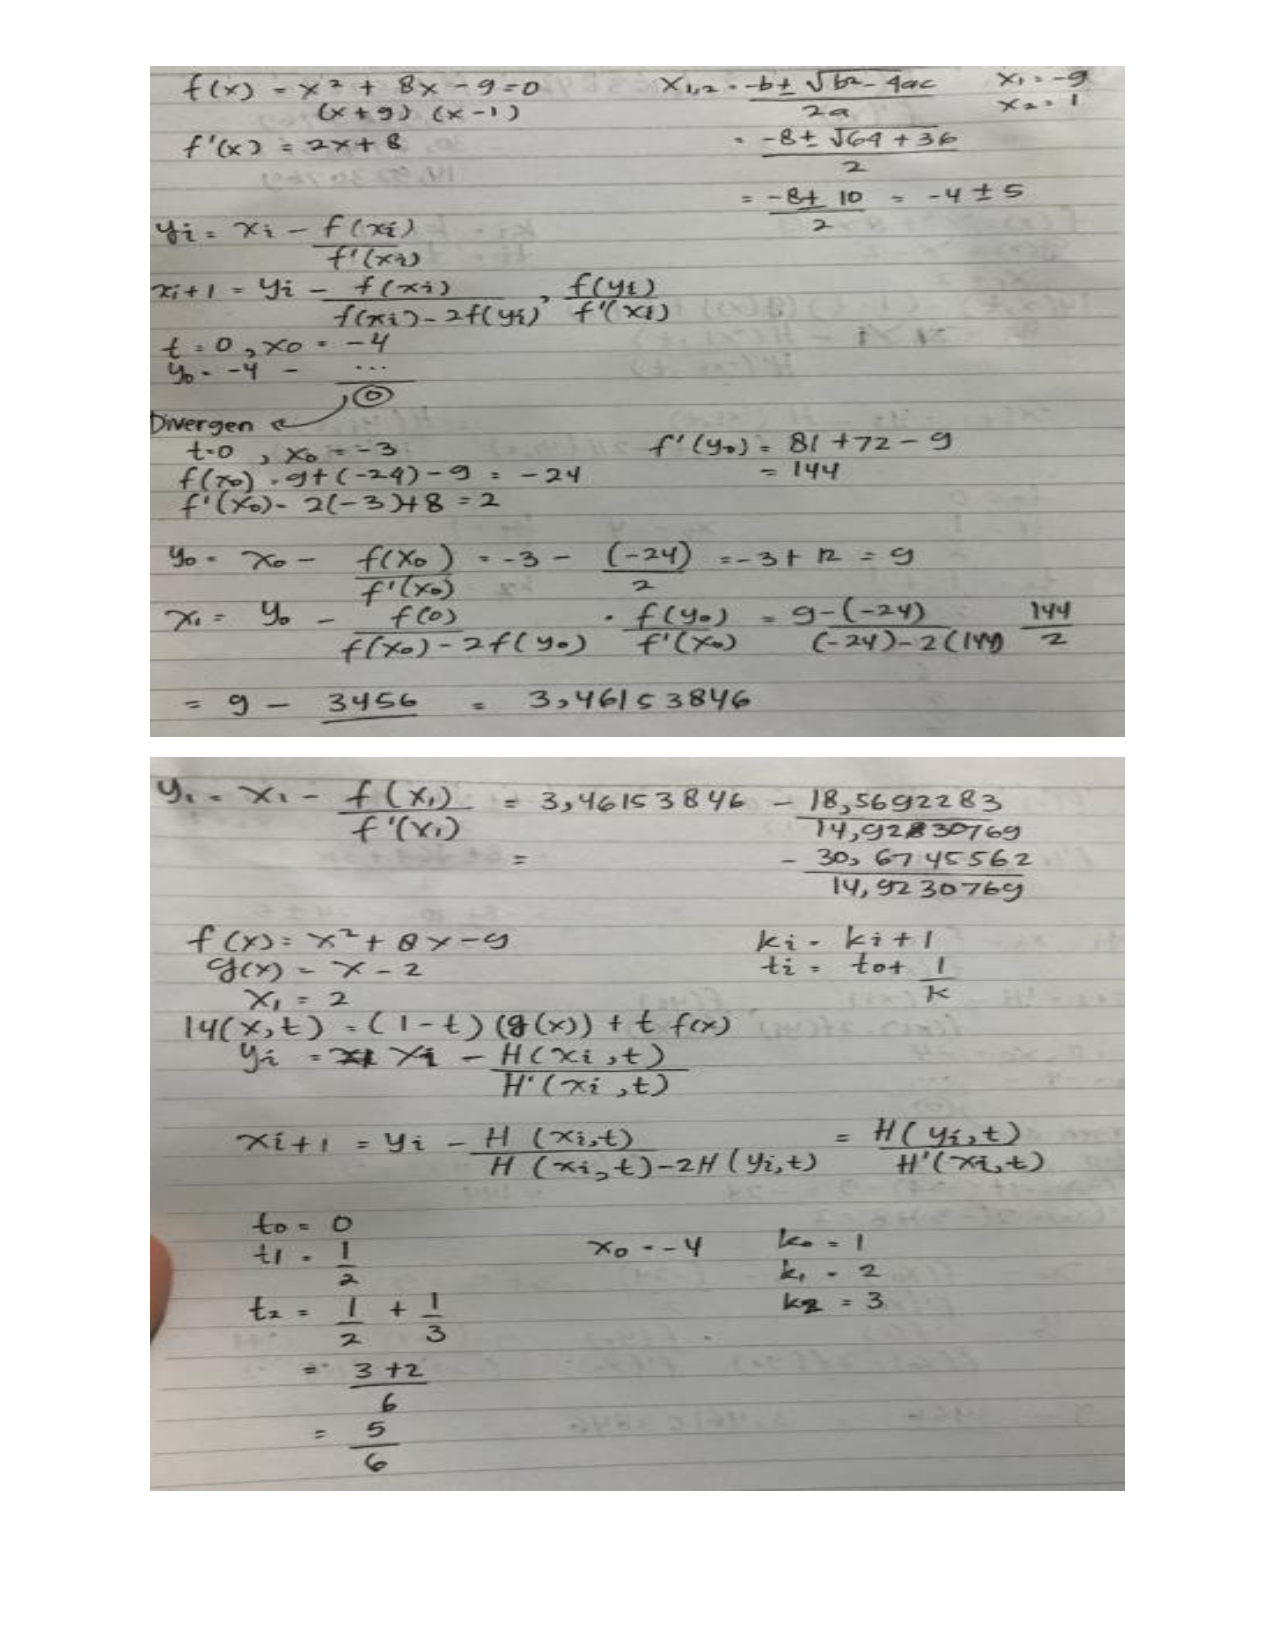 f(x) = x² + 8x - 9 = 0
(x + 9) (x - 1)
f'(x) = 2x + 8
x₁,₂ = -b ± √b² - 4ac / 2a
x₁ = -9
x₂ = 1
= -8 ± √64 + 36 / 2
= -8 ± 10 / 2 = -4 ± 5
yi = xi - f(xi) / f'(xi)
xi+1 = yi - f(xi) / f(xi) - 2f(yi) , f(yi) / f'(xi)
t = 0, x0 = -4
y₀ = -4 - ... / 0
Divergen
t=0 , x₀ = -3
f(x₀) = 9 + (-24) - 9 = -24
f'(x₀) = 2(-3)+8 = 2
f'(y₀) = 81 + 72 - 9
= 144
y₀ = x₀ - f(x₀) / f'(x₀) = -3 - (-24) / 2 = -3 + 12 = 9
x₁ = y₀ - f(0) / f(x₀) - 2f(y₀) · f(y₀) / f'(x₀) = 9 - (-24) / (-24) - 2(144) 144 / 2
= 9 - 3456 = 3,46153846
y₁ = x₁ - f(x₁) / f'(x₁) = 3,46153846 - 18,5692283 / 14,92830769
= - 30,6745562 / 14,9230769
f(x) = x² + 8x - 9
g(x) = x - 2
x₁ = 2
ki = ki + 1
ti = to + 1 / k
14(x,t) = (1 - t) (g(x)) + t f(x)
yi = xi - H(xi,t) / H'(xi,t)
xi+1 = yi - H (xi,t) / H (xi,t) - 2H (yi,t) = H(yi,t) / H'(xi,t)
t₀ = 0
t1 = 1 / 2
x₀ = -4
k₀ = 1
k₁ = 2
k2 = 3
t₂ = 1 / 2 + 1 / 3
= 3 + 2 / 6
= 5 / 6